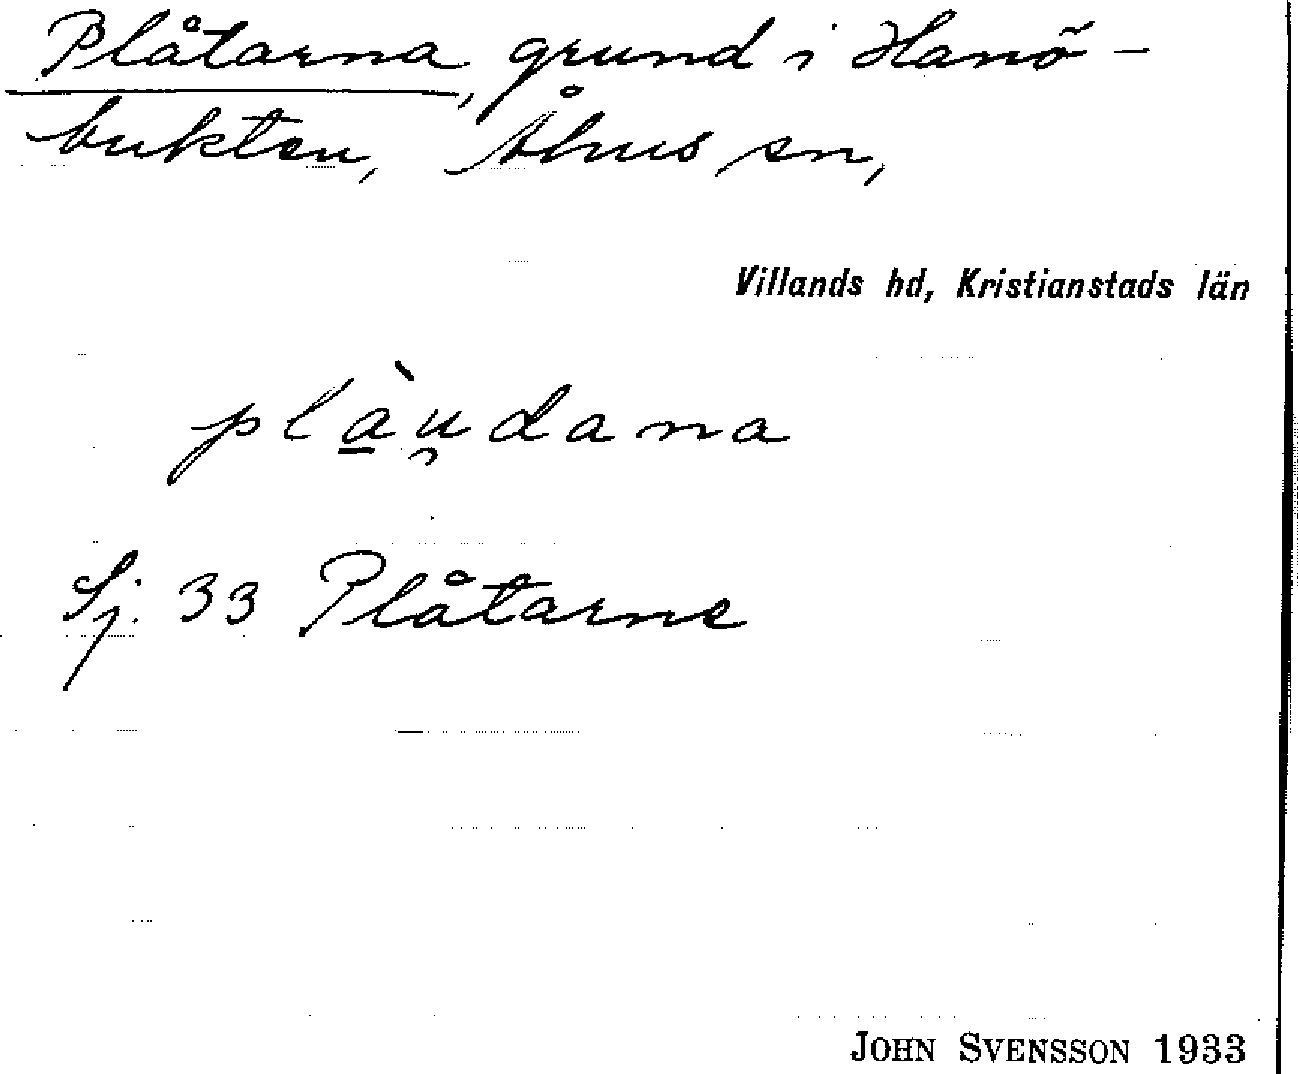 Plåtarna, grund i Hanö-
bukten, Åhus sn,
Villands hd, Kristianstads län
plà̱u̯dana
Sj. 33 Plåtarne
JOHN SVENSSON 1933